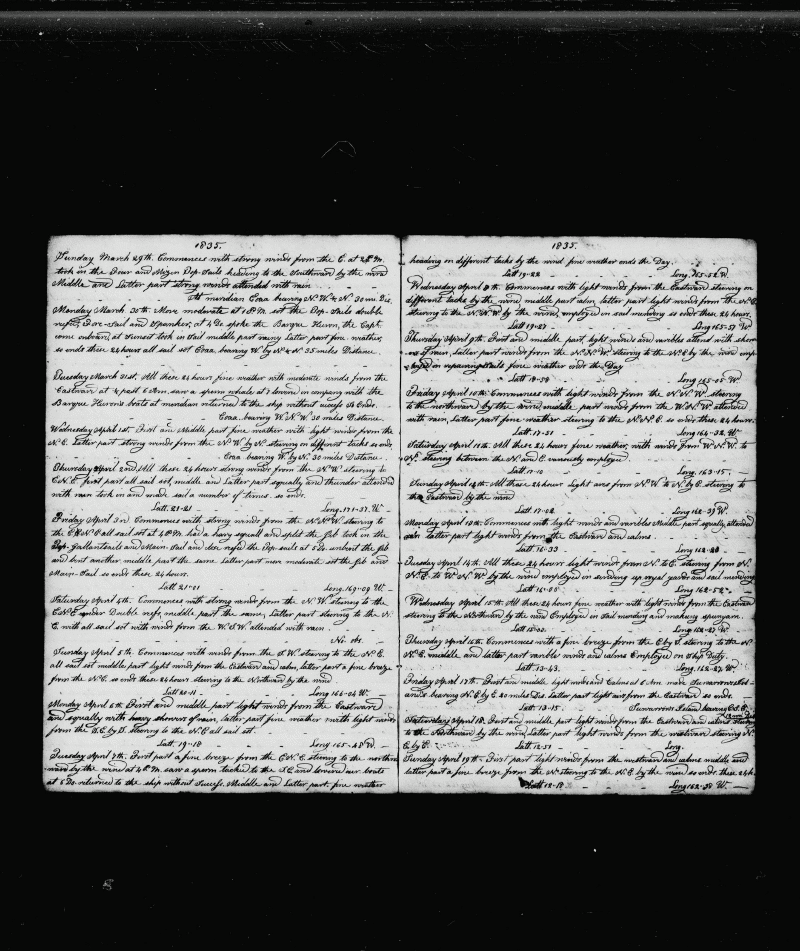 1835.
Sunday March 29th. Commences with strong winds from the E. at 2 P.M.
took in the Fore and Mizen Top-Sails heading to the Southward by the wind
Middle and Latter part strong winds attended with rain
At meridian Eoaa bearing N.W. & N. 30 mi. Dis.
Monday March 30th. More moderate at 1 P.M. set the Top-Sails double
reefed, Fore-Sail and Spanker, at 4 Do spoke the Barque Heron, the Capt.
come onboard, at Sunset took in Sail middle part rainy Latter part fine weather,
so ends these 24 hours all sail set Eoaa, bearing W. by N. & N. 35 miles Distance
Tuesday March 31st. All these 24 hours fine weather with moderate winds from the
Eastward at ½ past 6 A.m. saw a sperm whale at 7 lowered in company with the
Barque Heron's boats at meridian returned to the ship without success So Ends.
Eoaa bearing W.N.W. 30 miles Distance
Wednesday April 1st. First and Middle part fine weather with light winds from the
N.E. Latter part strong winds from the N.W. by N. steering on different tacks so ends
Eoaa bearing W. by N. 30 miles Distance
Thursday April 2nd. All these 24 hours strong winds from the N.W. steering to
E.N.E. first part all sail set, middle and Latter part squally and thunder attended
with rain took in and made sail a number of times so ends.
Latt. 21-21 Long. 171-37. W.
Friday April 3rd Commences with strong winds from the N.N.W. steering to
the E.N.E all sail set at 4 P.M. had a heavy squall and split the Jib took in the
Top-Gallantsails and Main-Sail and dou reefd the Top-sails at 5 Do unbent the Jib
and bent another middle part the same Latter part more moderate set the Jib and
Main-Sail so ends these 24 hours.
Latt 21-01 Long. 169-09 W.
Saturday April 4th. Commences with strong winds from the N.W. steering to the
E.N.E under Double reefs, middle part the same, Latter part steering to the N.
E. with all sail set with winds from the W.S.W. attended with rain
No obs
Sunday April 5th. Commences with winds from the S.W. steering to the N.E.
all sail set middle part light winds from the Eastward and calm, latter part a fine breeze
from the N.E. so ends these 24 hours steering to the Northward by the wind
Latt 20-11 Long 166-04 W.
Monday April 6th. First and middle part light winds from the Eastward
and squally with heavy showers of rain, latter part fine weather with light winds
from the S.E. by S. steering to the N.E all sail set.
Latt. 19-18 Long 165-48 W.
Tuesday April 7th. First part a fine breeze from the E.N.E. steering to the north
ward by the wind at 4 P.M. saw a sperm tacked to the S.E. and lowered our boats
at 6 Do returned to the ship without Success. Middle and Latter part, fine weather
1835.
heading on different tacks by the wind. fine weather ends the Day
Latt 19-22 Long. 165-52 W.
Wednesday April 8th. Commences with light winds from the Eastward steering on
different tacks by the wind, middle part calm, latter part light winds from the N.E.
steering to the N.N.W. by the wind, employed on sail mending so ends these 24 hours.
Latt 19-27 Long 165-57 W
Thursday April 9th. First and middle part, light winds and varibles attend with show
ers of rain, Latter part winds from the N.N.W. steering to the N.E by the wind emp
loyed on repairing sails fine weather ends the Day
Latt 18-59 Long 165-05 W.
Friday April 10th. Commences with light winds from the N.N.W. steering
to the northward by the wind, middle part winds from the W.N.W. attended
with rain, Latter part fine weather steering to the N.N.E. so ends these 24 hours.
Latt 17-31 Long 164-32. W
Saturday April 11th. All these 24 hours fine weather, with winds from W.N.W. to
N. steering between the N. and E. variously employed
Latt 17-10 Long. 163-15
Sunday April 12th. All these 24 hours Light airs from N.W. to N. by E. steering to
the Eastward by the wind
Latt 17-02 Long 162-39 W.
Monday April 13th. Commences with light winds and varibles Middle part squally attended
rain latter part light winds from the Eastward and calms
Latt 16-33 Long 162-20
Tuesday April 14th. All these 24 hours light winds from N. to E. steering from N.
N.E. to W.N.W. by the wind employed on sending up royal yards and sail mending
Latt 16-00 Long 162-52
Wednesday April 15th. All these 24 hours fine weather with light winds from the Eastward
steering to the Northward by the wind Employed on Sail mending and making spunyarn.
Latt 15-00. Long 162-47 W.
Thursday April 16th. Commences with a fine breeze from the E by S. steering to the N.
N.E. middle and latter part varible winds and calms Employed on Ship Duty.
Latt. 13-43. Long. 162-27 W.
Friday April 17th. First and middle part light winds and Calms at 6 A.m. made
and. bearing N.E by E. 20 miles Dis. Latter part light airs from the Eastward so ends.
Latt. 13-15 Island bearing
Saturday April 18. First and middle part light winds from the Eastward and calms
to the Northward by the wind, Latter part light winds from the westward steering N.
E by E. Latt 12-51 Long.
Sunday April 19th. First part light winds from the westward and calms middle and
latter part a fine breeze from the N. steering to the N.E. by the wind so ends these 24 h.
Latt 12-18 Long 162-38 W.